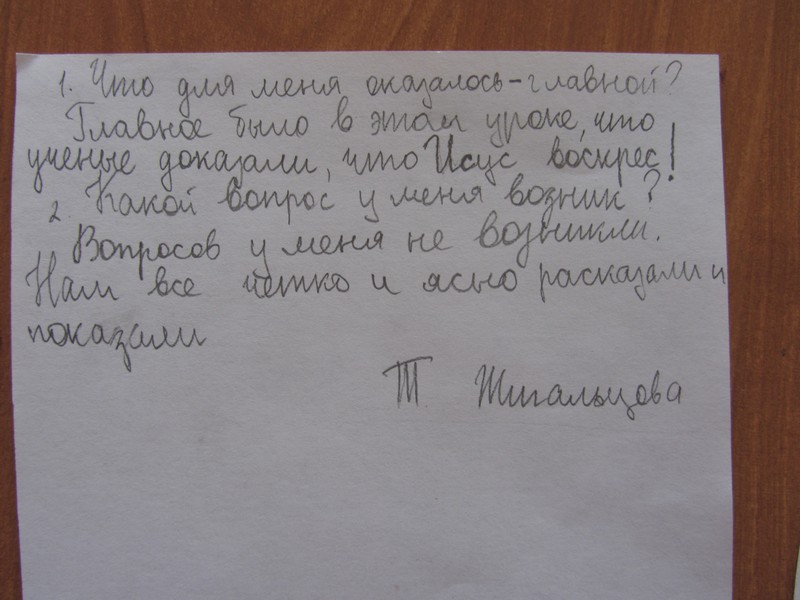 1. Что для меня оказалось-главной?
Главное было в этом уроке, что
ученые доказали, что Исус воскрес!
2. Какой вопрос у меня возник?
Вопросов у меня не возникли.
Нам все четко и ясно расказали и
показали
Т. Жигальцова